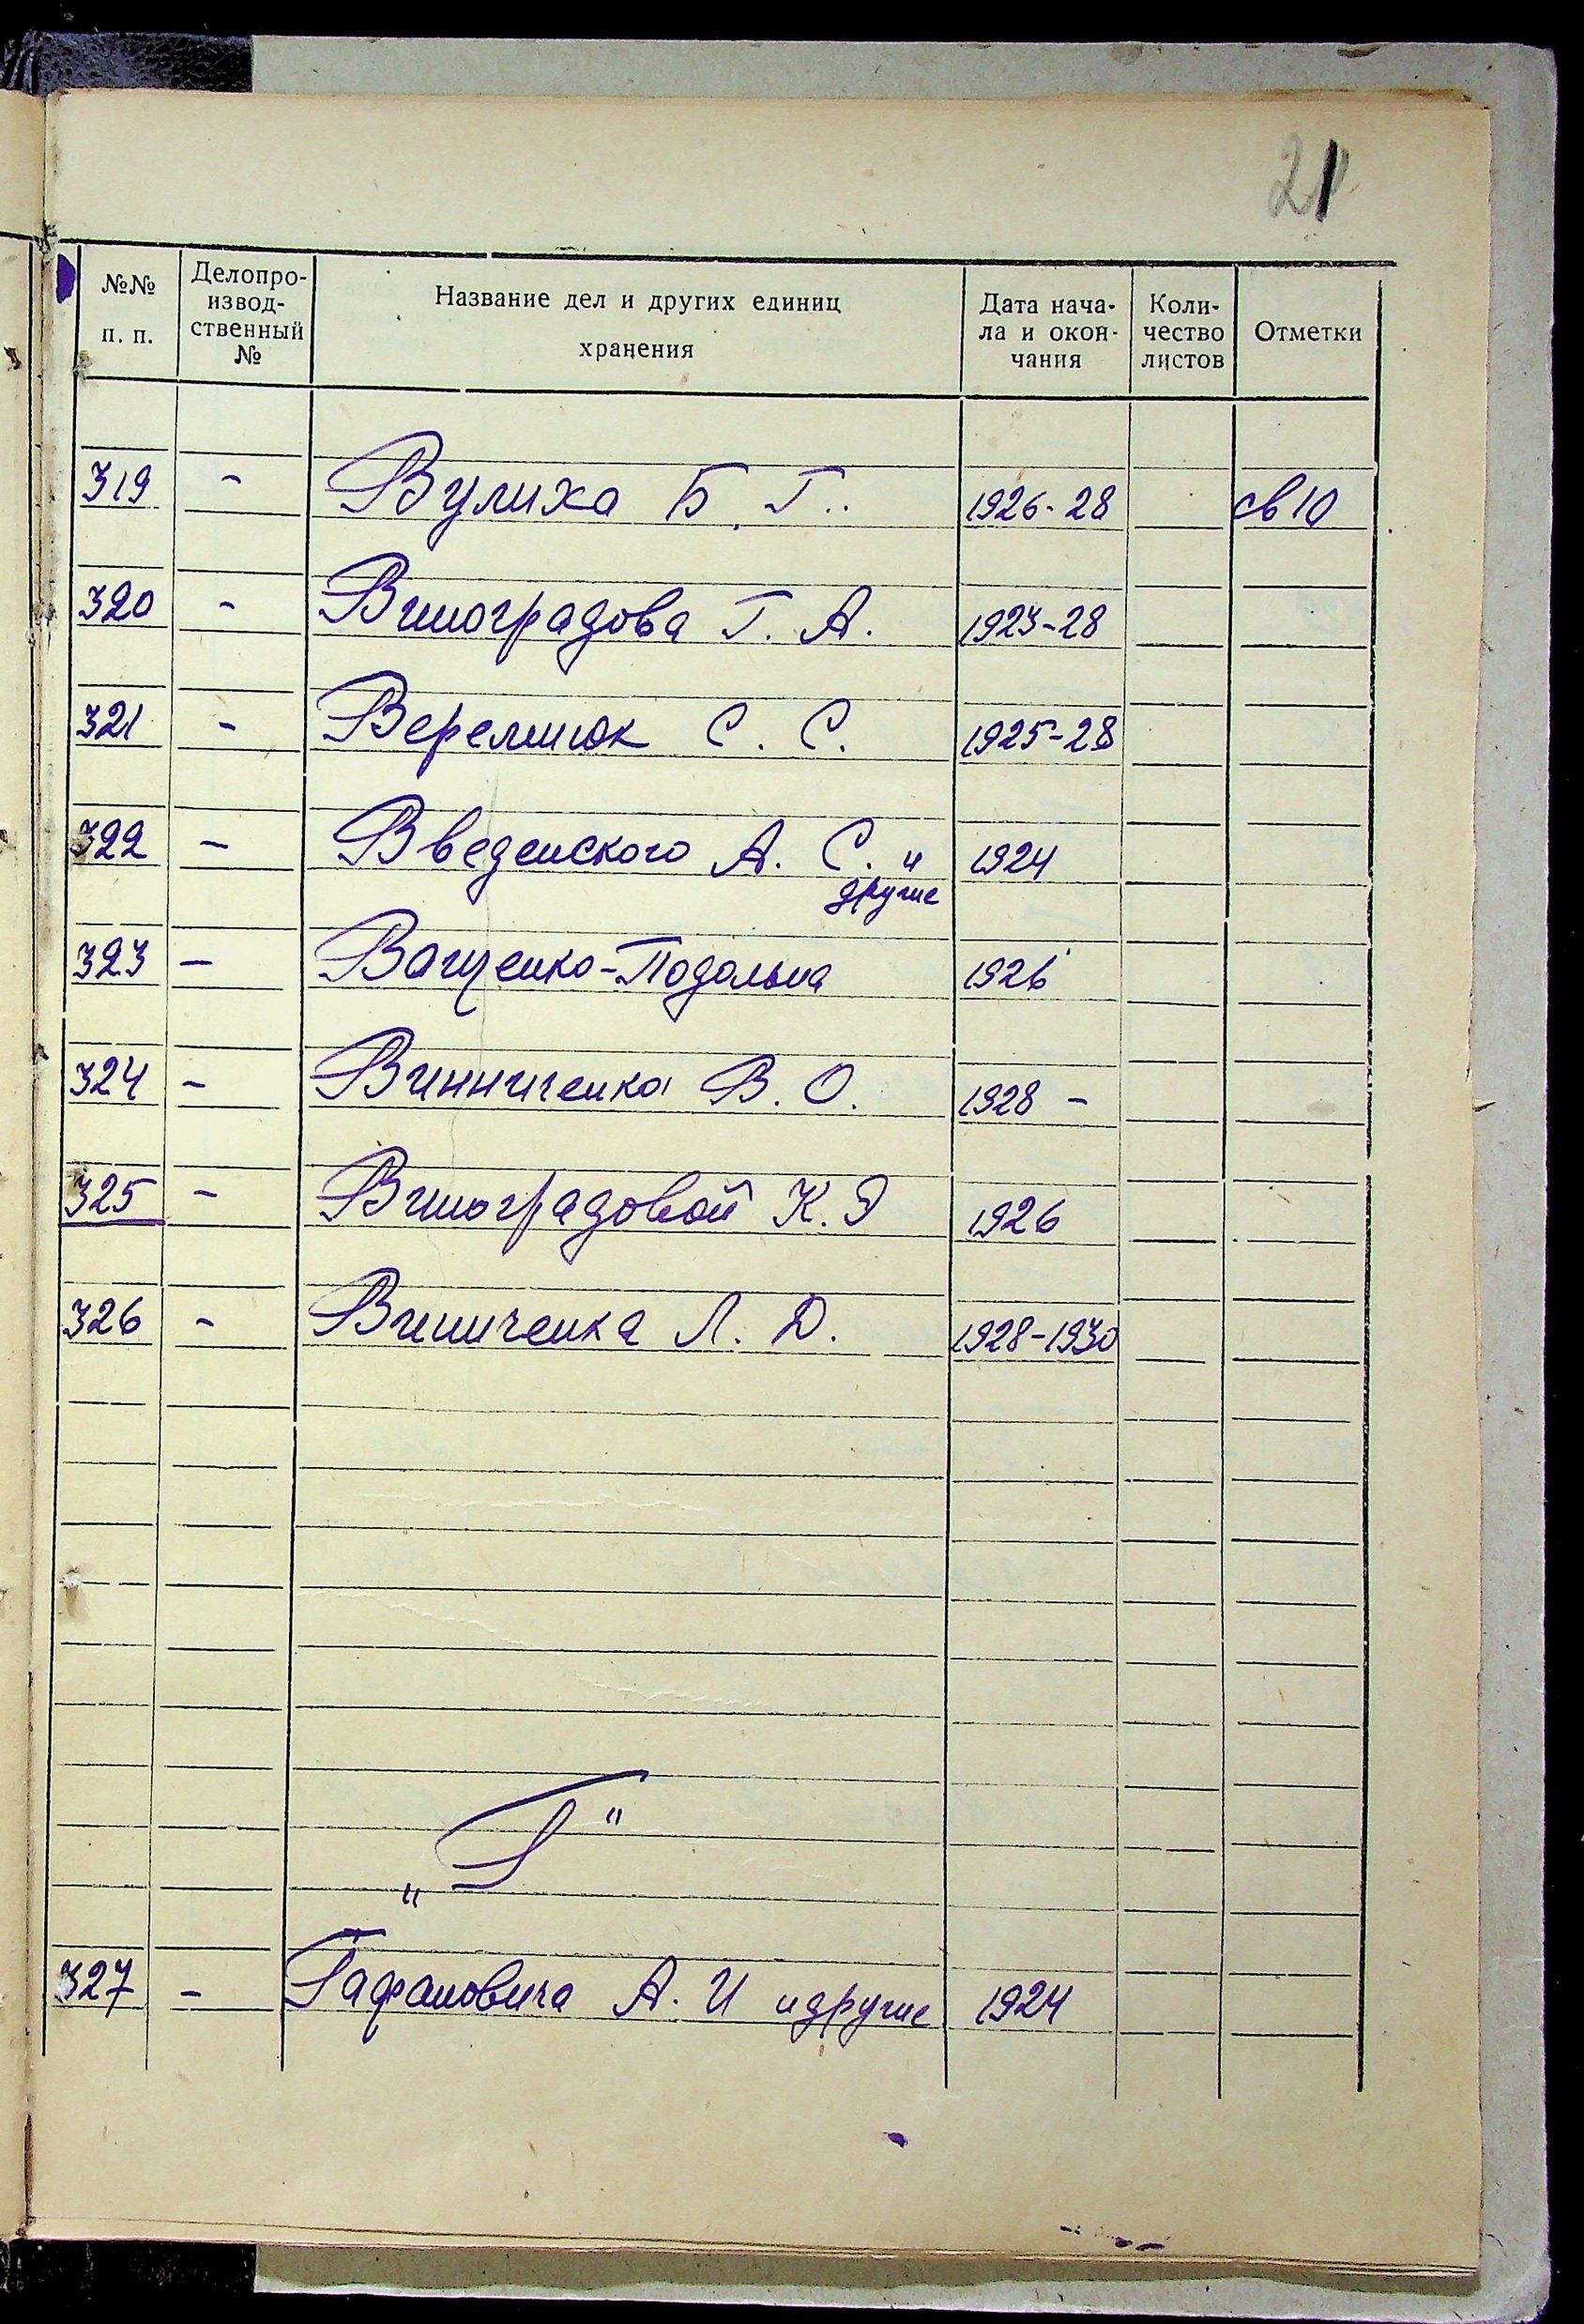 21
№№ п. п.
Делопро-
извод-
ственный
№
Название дел и других единиц
хранения
Дата нача-
ла и окон-
чания
Коли-
чество
листов
Отметки
319 - Вулиха Б. Г.. 1926-28 св 10
320 - Виноградова Г. А. 1923-28
321 - Веремиюк С. С. 1925-28
322 - Введенского А. С. и 1924
другие
323 - Ващенко-Подольна 1926
324 - Винниченка В. О. 1928 -
325 - Виноградовой К. Э 1926
326 - Виниченка Л. Д. 1928-1930
„Г"
327 - Гафановича А. И и другие 1924